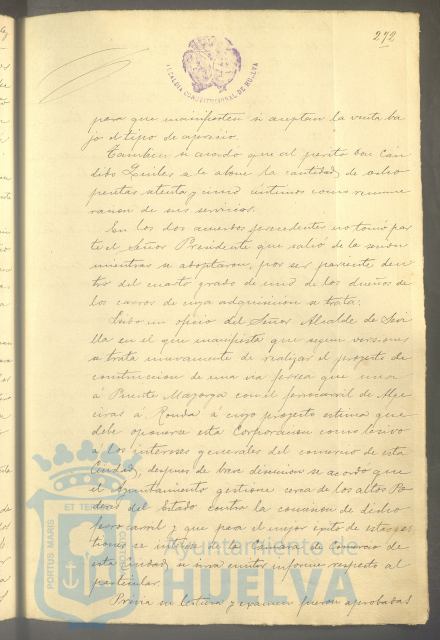 272
ALCALDÍA CONSTITUCIONAL DE HUELVA
para que manifiesten si aceptan la venta ba
jo el tipo de aprecio.
Tambien se acordó que al perito Don Cán
dido se le abone la cantidad de ocho
pesetas ochenta y cinco céntimos como remune
racion de sus servicios.
En los dos acuerdos precedentes no tomó par
te el Señor Presidente que salió de la sesion
mientras se adoptaron, por ser pariente den
tro del cuarto grado de uno de los dueños de
los carros de cuya adquisicion se trata.
Leido un oficio del Señor Alcalde de Sevi
lla en el que manifiesta que segun versiones
se trata nuevamente de realizar el proyecto de
construccion de una via ferrea que una
á Puente Mayorga con el ferrocarril de Alge
ciras á Ronda á cuyo proyecto estima que
debe oponerse esta Corporacion como lesivo
á los intereses generales del comercio de esta
Ciudad, despues de breve discusion se acordó que
el Ayuntamiento gestione cerca de los altos Po
deres del Estado contra la concesion de dicho
ferrocarril y que para el mejor éxito de estas ges
tiones se de la Cámara de Comercio de
esta ciudad se sirva emitir informe respecto al
particular.
Previa su lectura y examen fueron aprobadas
PORTUS MARIS ET TERRAE CUSTODIA
Ayuntamiento de
HUELVA